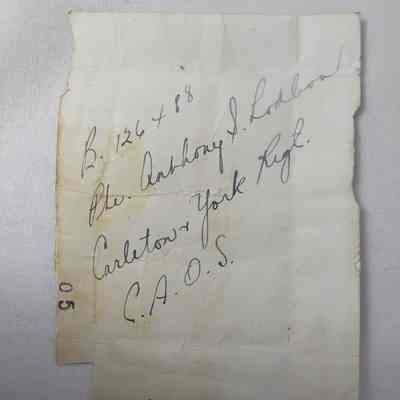 B. 126488
Pte. Anthony S.
Carleton & York Regt.
C. A. O. S.
05